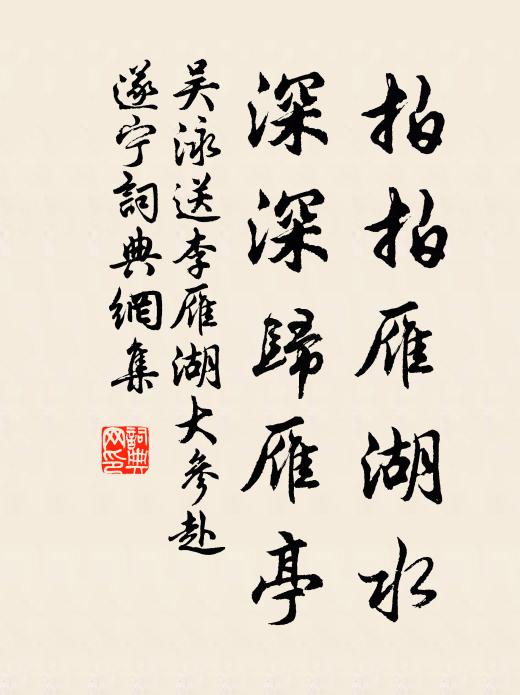 拍拍雁湖水
深深歸雁亭
吴泳送李雁湖大參赴
遂宁詞典網集
詞典网印